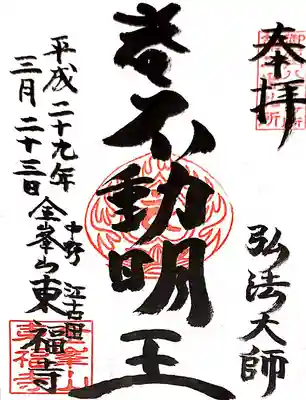 奉拝
弘法大師
不動明王
中野 江古田
金峯山東福寺
平成二十九年
三月二十三日